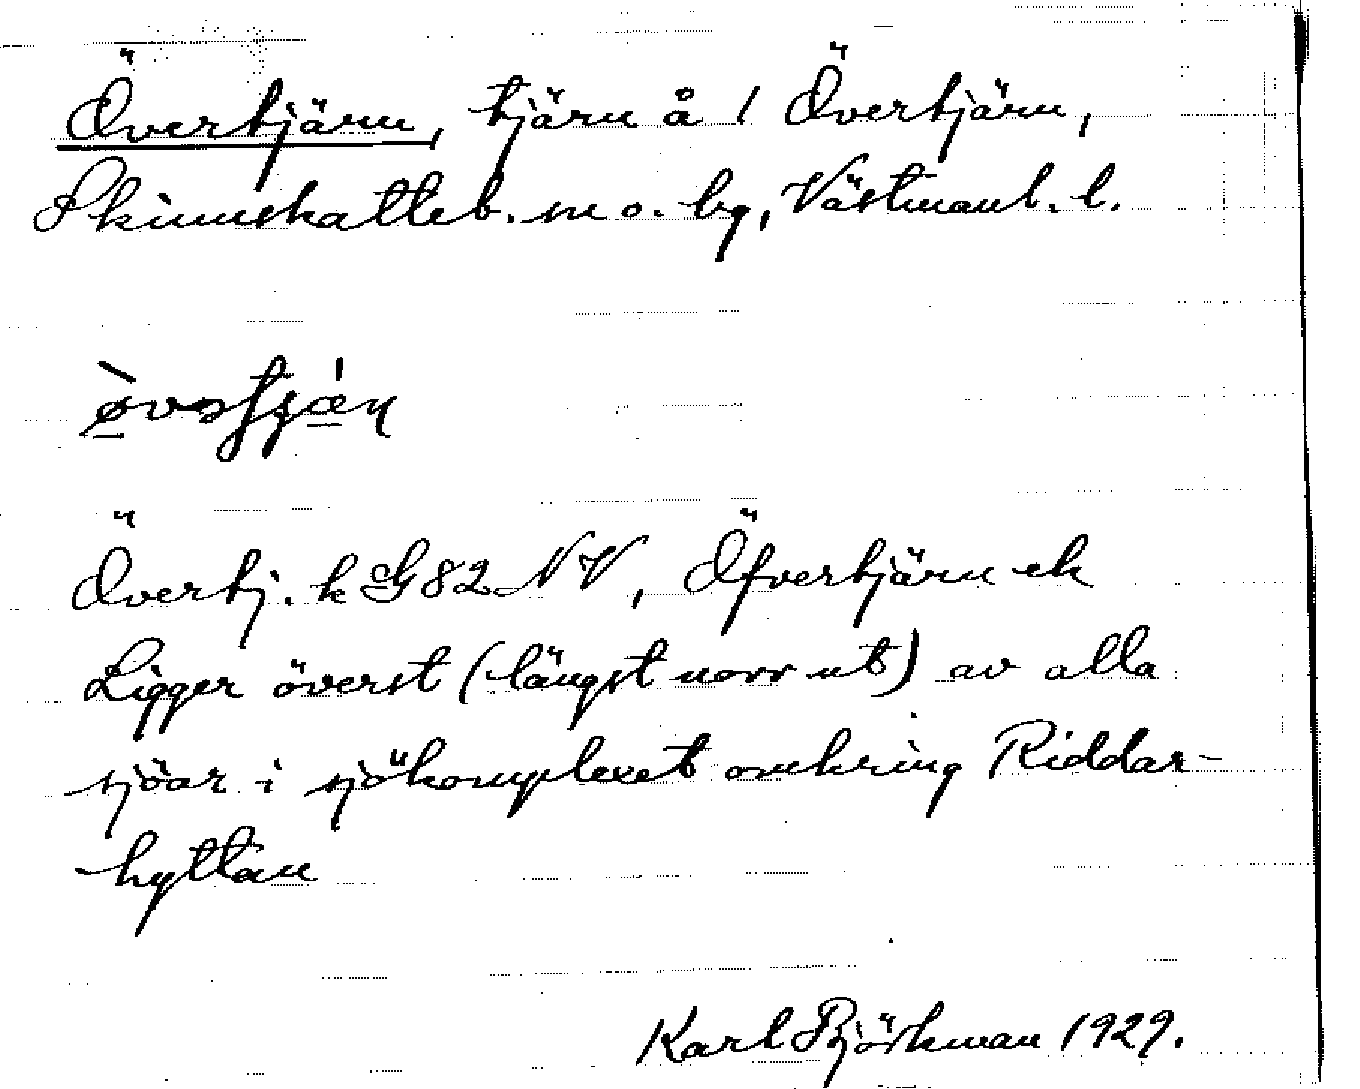 Övertjärn, tjärn å 1 Övertjärn,
Skinnskatteb. sn o. bg, Västmanl. l.
Övertj. k G82 NV, Öfvertjärn ek
Ligger överst (längst norr ut) av alla
sjöar i sjökomplexet omkring Riddar-
hyttan
Karl Björkman 1929.